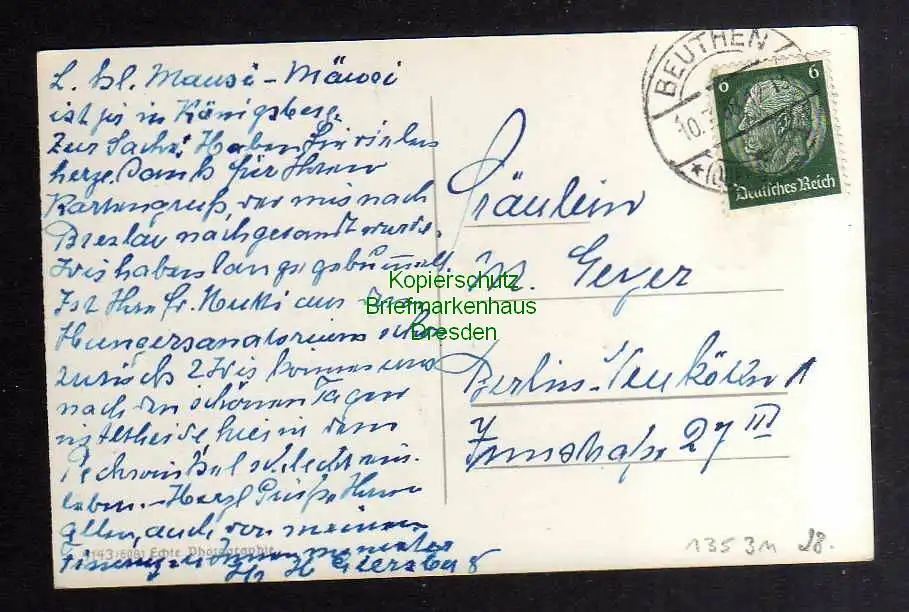 L. kl. Mausi-Mäusi
ist ja in Königsberg.
Zur Sache: Haben Sie vielen
herzl. Dank für Ihren
Kartengruß, der mir nach
Breslau nachgesandt wurde.
Wir haben lange gebummelt.
Ist Ihre Fr. Mutti aus dem
Hungersanatorium schon
zurück? Wir können uns
nach den schönen Tagen
hier in dem
Pechwinkel schlecht ein-
leben. Herzl. Grüße Ihnen
allen, auch von meinen
(6081) Echte Photographie
BEUTHEN
10.
6 6
Deutsches Reich
Fräulein
M. Geyer
Berlin-Neukölln 1
Innstraße 27 III
Kopierschutz
Briefmarkenhaus
Dresden
135 3m 28.